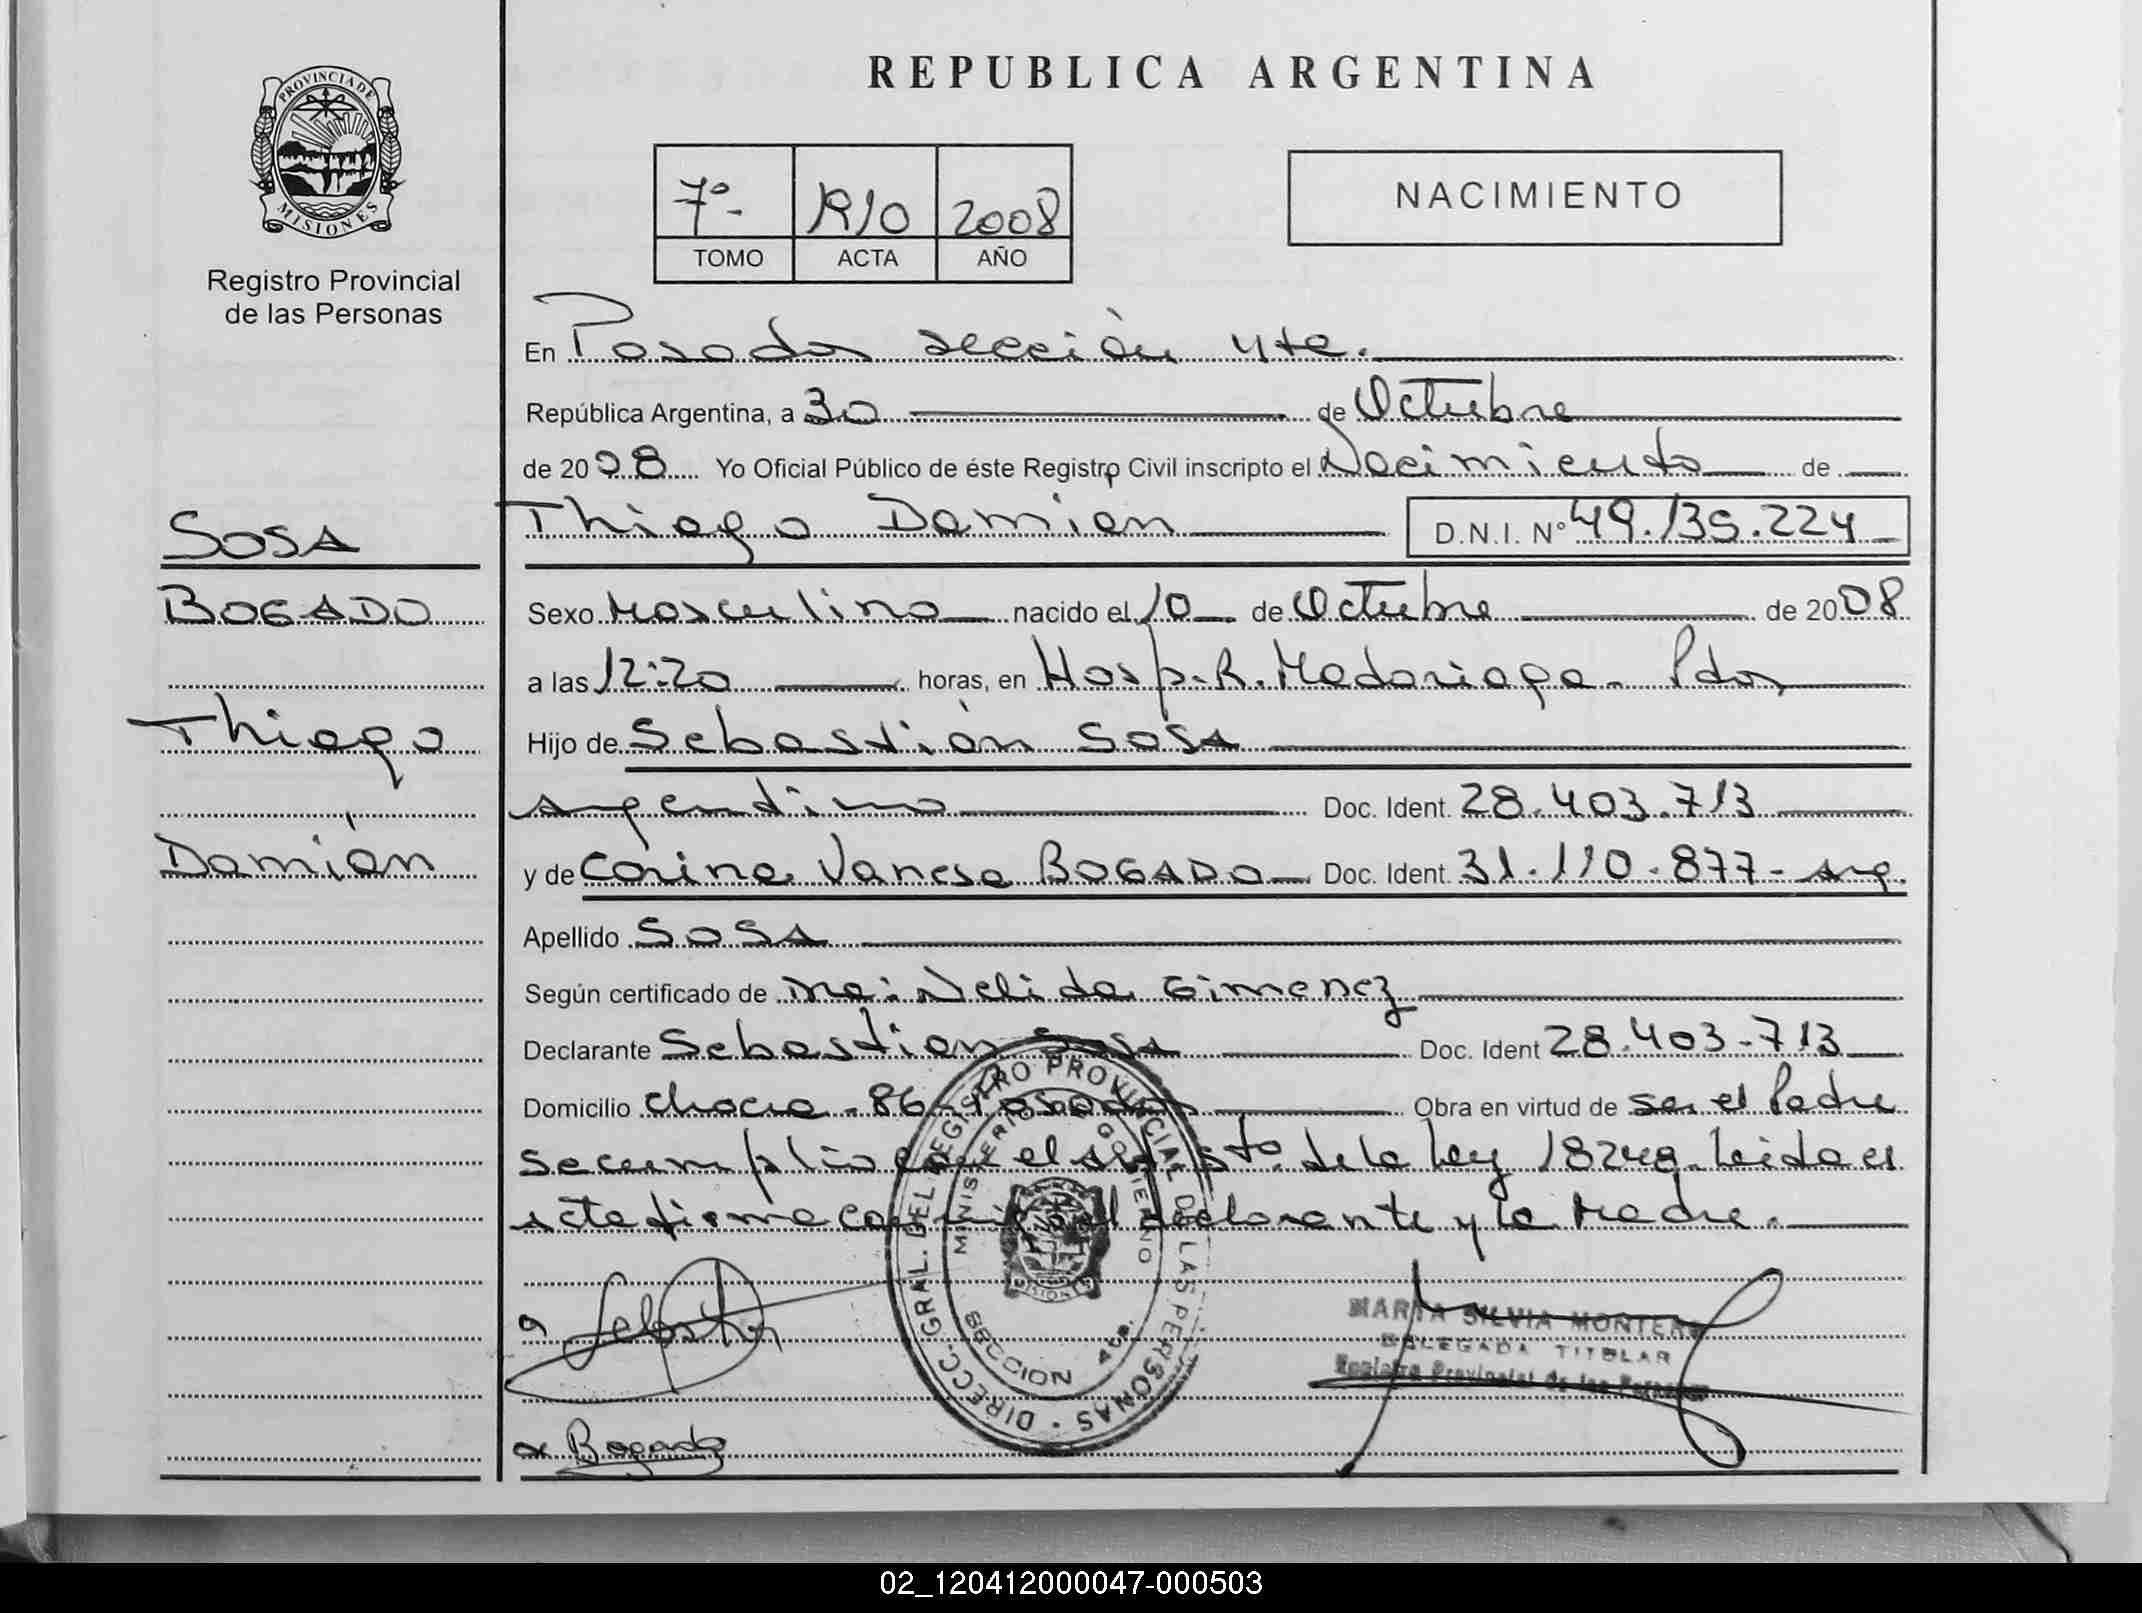 PROVINCIA DE
MISIONES
Registro Provincial
de las Personas
SOSA
BOGADO
Thiago
Damián
REPUBLICA ARGENTINA
7º- 1210 2008
TOMO ACTA AÑO
NACIMIENTO
En Posadas sección 4ta.
República Argentina, a 30 de Octubre
de 2008 Yo Oficial Público de éste Registro Civil inscripto el Nacimiento de
Thiago Damian D.N.I. Nº 49.135.224
Sexo Masculino nacido el 10 de Octubre de 2008
a las 12:20 horas, en Hosp. R. Madariaga - Pdas
Hijo de Sebastián SOSA
argentino Doc. Ident. 28.403.713
y de Corina Vanesa BOGADO Doc. Ident. 31.110.877- arg.
Apellido SOSA
Según certificado de Nelida Gimenez
Declarante Sebastian Sosa Doc. Ident 28.403.713
Domicilio chacra - 86 - Posadas Obra en virtud de ser el Padre
se cumplio con el de la Ley 18248. Leida el
acta firma conmigo el declarante y la Madre.
Sebastian
Bogado
DIRECC. GRAL. DEL REGISTRO PROVINCIAL DE LAS PERSONAS
MINISTERIO DE GOBIERNO
SECCION 4ta.
MISIONES
MARTA SILVIA MONTERO
DELEGADA TITULAR
Registro Provincial de las Personas
02_120412000047-000503